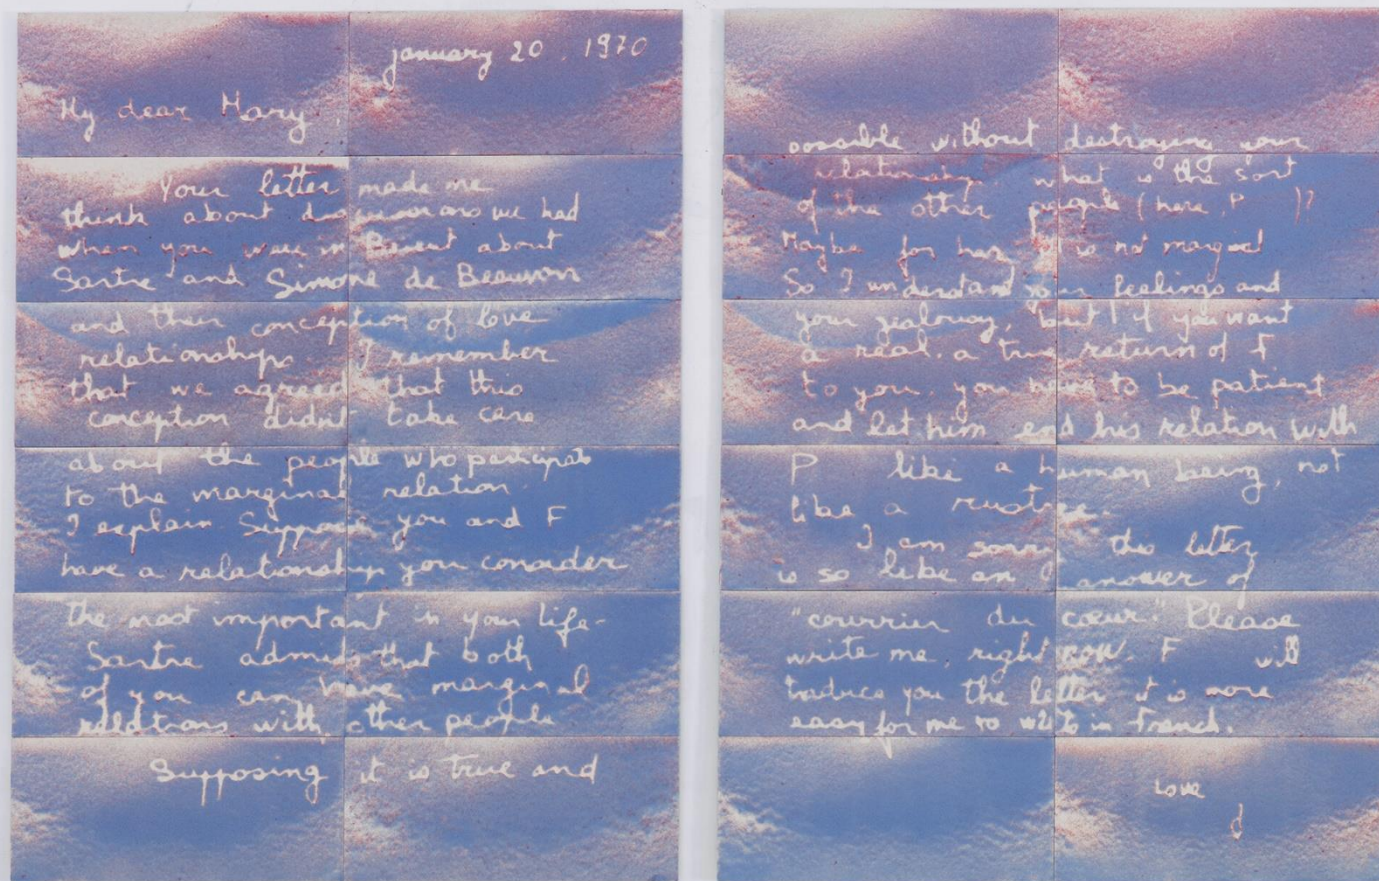 january 20, 1970
My dear Mary,
Your letter made me
think about discussions we had
when you were in Brent about
Sartre and Simone de Beauvoir
and their conception of love
relationships I remember
that we agreed that this
conception didn't take care
about the people who participate
to the marginal relation.
I explain Suppose you and F
have a relationship you consider
the most important in your life-
Sartre admits that both
of you can have marginal
relations with other people
Supposing it is true and
possible without destroying your
relationship what is the sort
of the other people (here, P )?
Maybe for her it is not marginal
So I understand your feelings and
your jealousy, but if you want
a real. a true return of F
to you, you have to be patient
and let him end his relation with
P like a human being, not
like a
I am sorry this letter
is so like an answer of
"courrier du cœur". Please
write me, right now. F will
traduce you the letter it is more
easy for me to write in french.
love
d